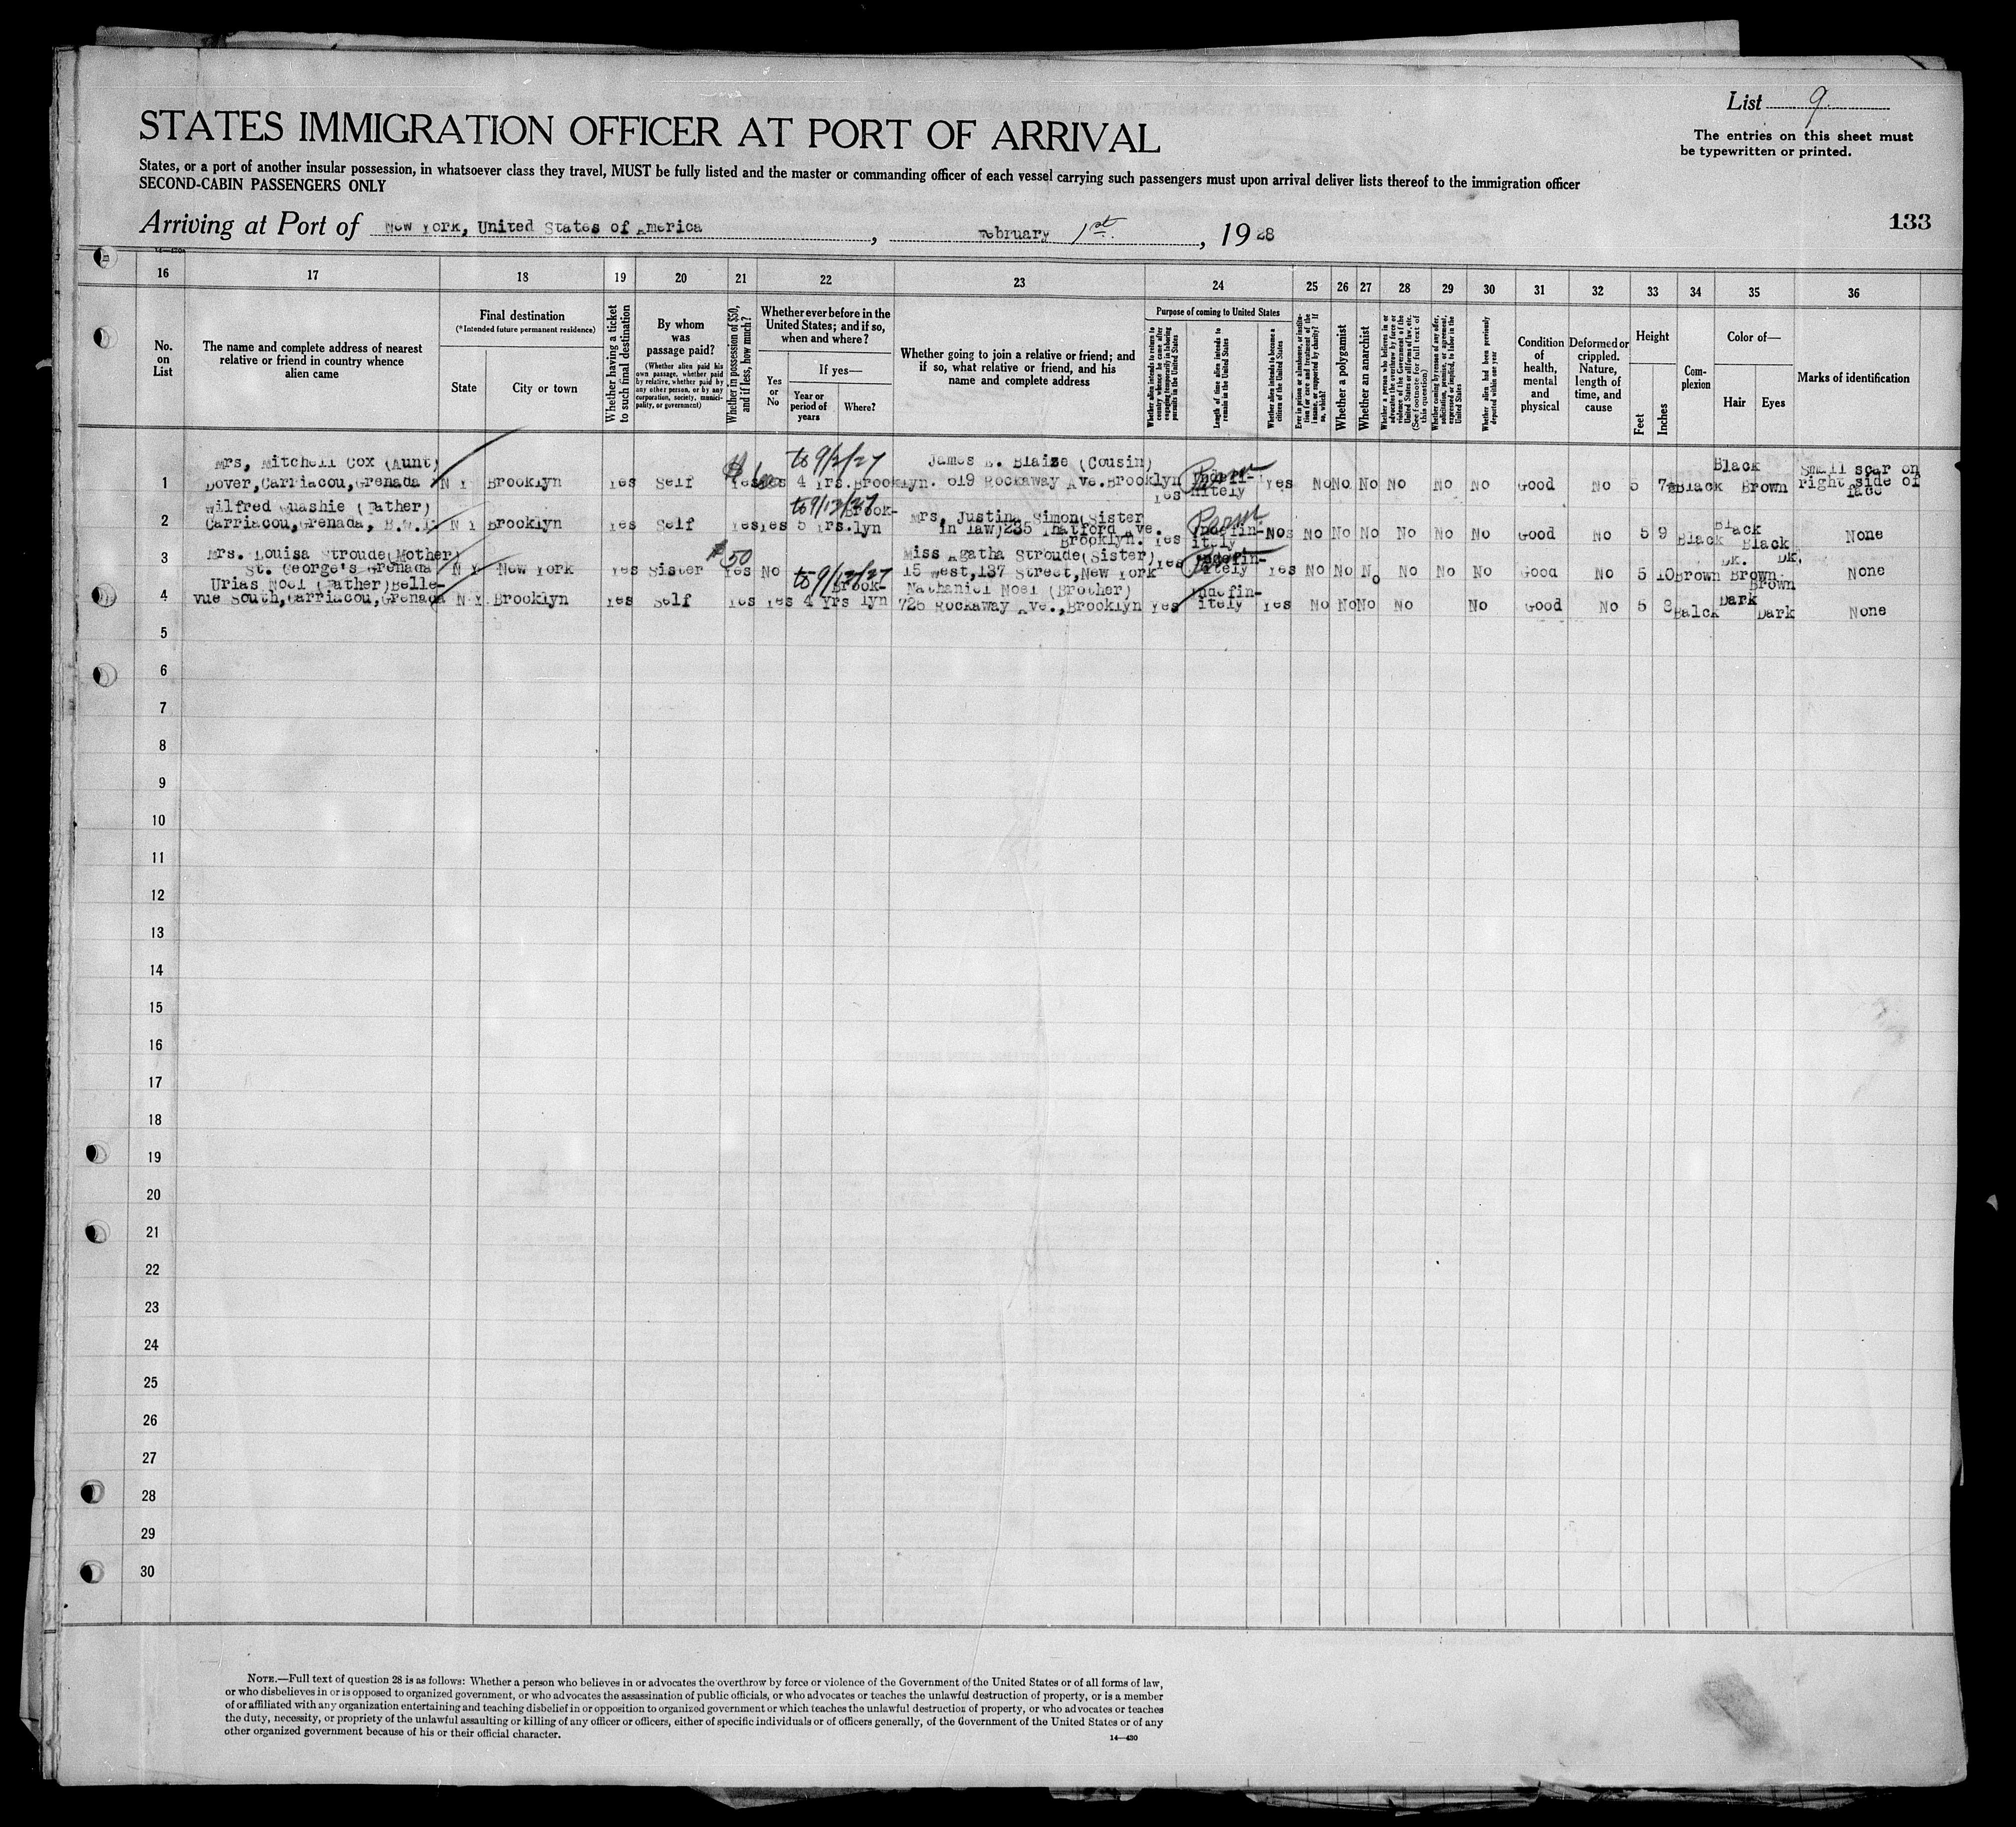 List 9.
The entries on this sheet must
be typewritten or printed.
STATES IMMIGRATION OFFICER AT PORT OF ARRIVAL
States, or a port of another insular possession, in whatsoever class they travel, MUST be fully listed and the master or commanding officer of each vessel carrying such passengers must upon arrival deliver lists thereof to the immigration officer
SECOND-CABIN PASSENGERS ONLY
Arriving at Port of New York, United States of America, February 1st, 1928
133
16 17 18 19 20 21 22 23 24 25 26 27 28 29 30 31 32 33 34 35 36
No.
on
List
The name and complete address of nearest
relative or friend in country whence
alien came
Final destination
(*Intended future permanent residence)
State
City or town
Whether having a ticket
to such final destination
By whom
was
passage paid?
(Whether alien paid his
own passage, whether paid
by relative, whether paid by
any other person, or by any
corporation, society, munici-
pality, or government)
Whether in possession of $50,
and if less, how much?
Whether ever before in the
United States; and if so,
when and where?
Yes
or
No
If yes—
Year or
period of
years
Where?
Whether going to join a relative or friend; and
if so, what relative or friend, and his
name and complete address
Purpose of coming to United States
Whether alien intends to return to
country whence he came after
engaging temporarily in laboring
pursuits in the United States
Length of time alien intends to
remain in the United States
Whether alien intends to become a
citizen of the United States
Whether a polygamist
Whether an anarchist
Whether alien had been previously
deported within one year
Condition
of
health,
mental
and
physical
Deformed or
crippled.
Nature,
length of
time, and
cause
Height
Feet
Inches
Com-
plexion
Color of—
Hair
Eyes
Marks of identification
1 Mrs, Mitchell Cox (Aunt)
Dover, Carriacou, Grenada N Y Brooklyn Yes Self Yes Yes 4 Yrs. Brooklyn. to 9/2/27
James E. Blaize (Cousin)
619 Rockaway Ave. Brooklyn Yes Indefi-
nitely Perm Yes No No No No No No Good No 5 7½ Black Black Brown Small scar on
right side of
face
2 Wilfred Quashie (Father)
Carriacou, Grenada, B.W.I. N Y Brooklyn Yes Self Yes Yes 5 Yrs. Brook-
lyn to 9/13/27
Mrs, Justina Simon (Sister
in law) 235 Thatford Ave.
Brooklyn. Yes Indefin-
itely Perm No No No No No No No Good No 5 9 Black Black Black None
3 Mrs. Louisa Stroude (Mother)
St. George's Grenada N Y New York Yes Sister $50 Yes No
Miss Agatha Stroude (Sister)
15 West, 137 Street, New York Yes Indefin-
itely Yes No No No No No No Good No 5 10 Brown Dk. Brown Dk. Brown None
4 Urias Noel (Father) Belle-
vue South, Carriacou, Grenada N Y Brooklyn Yes Self Yes Yes 4 Yrs Brook-
lyn to 9/12/27
Nathaniel Noel (Brother)
726 Rockaway Ave., Brooklyn Yes Indefin-
itely Yes No No No No No Good No 5 8 Balck Dark Dark None
5
6
7
8
9
10
11
12
13
14
15
16
17
18
19
20
21
22
23
24
25
26
27
28
29
30
NOTE.—Full text of question 28 is as follows: Whether a person who believes in or advocates the overthrow by force or violence of the Government of the United States or of all forms of law,
or who disbelieves in or is opposed to organized government, or who advocates the assassination of public officials, or who advocates or teaches the unlawful destruction of property, or is a member
of or affiliated with any organization entertaining and teaching disbelief in or opposition to organized government or which teaches the unlawful destruction of property, or who advocates or teaches
the duty, necessity, or propriety of the unlawful assaulting or killing of any officer or officers, either of specific individuals or of officers generally, of the Government of the United States or of any
other organized government because of his or their official character.
14—430